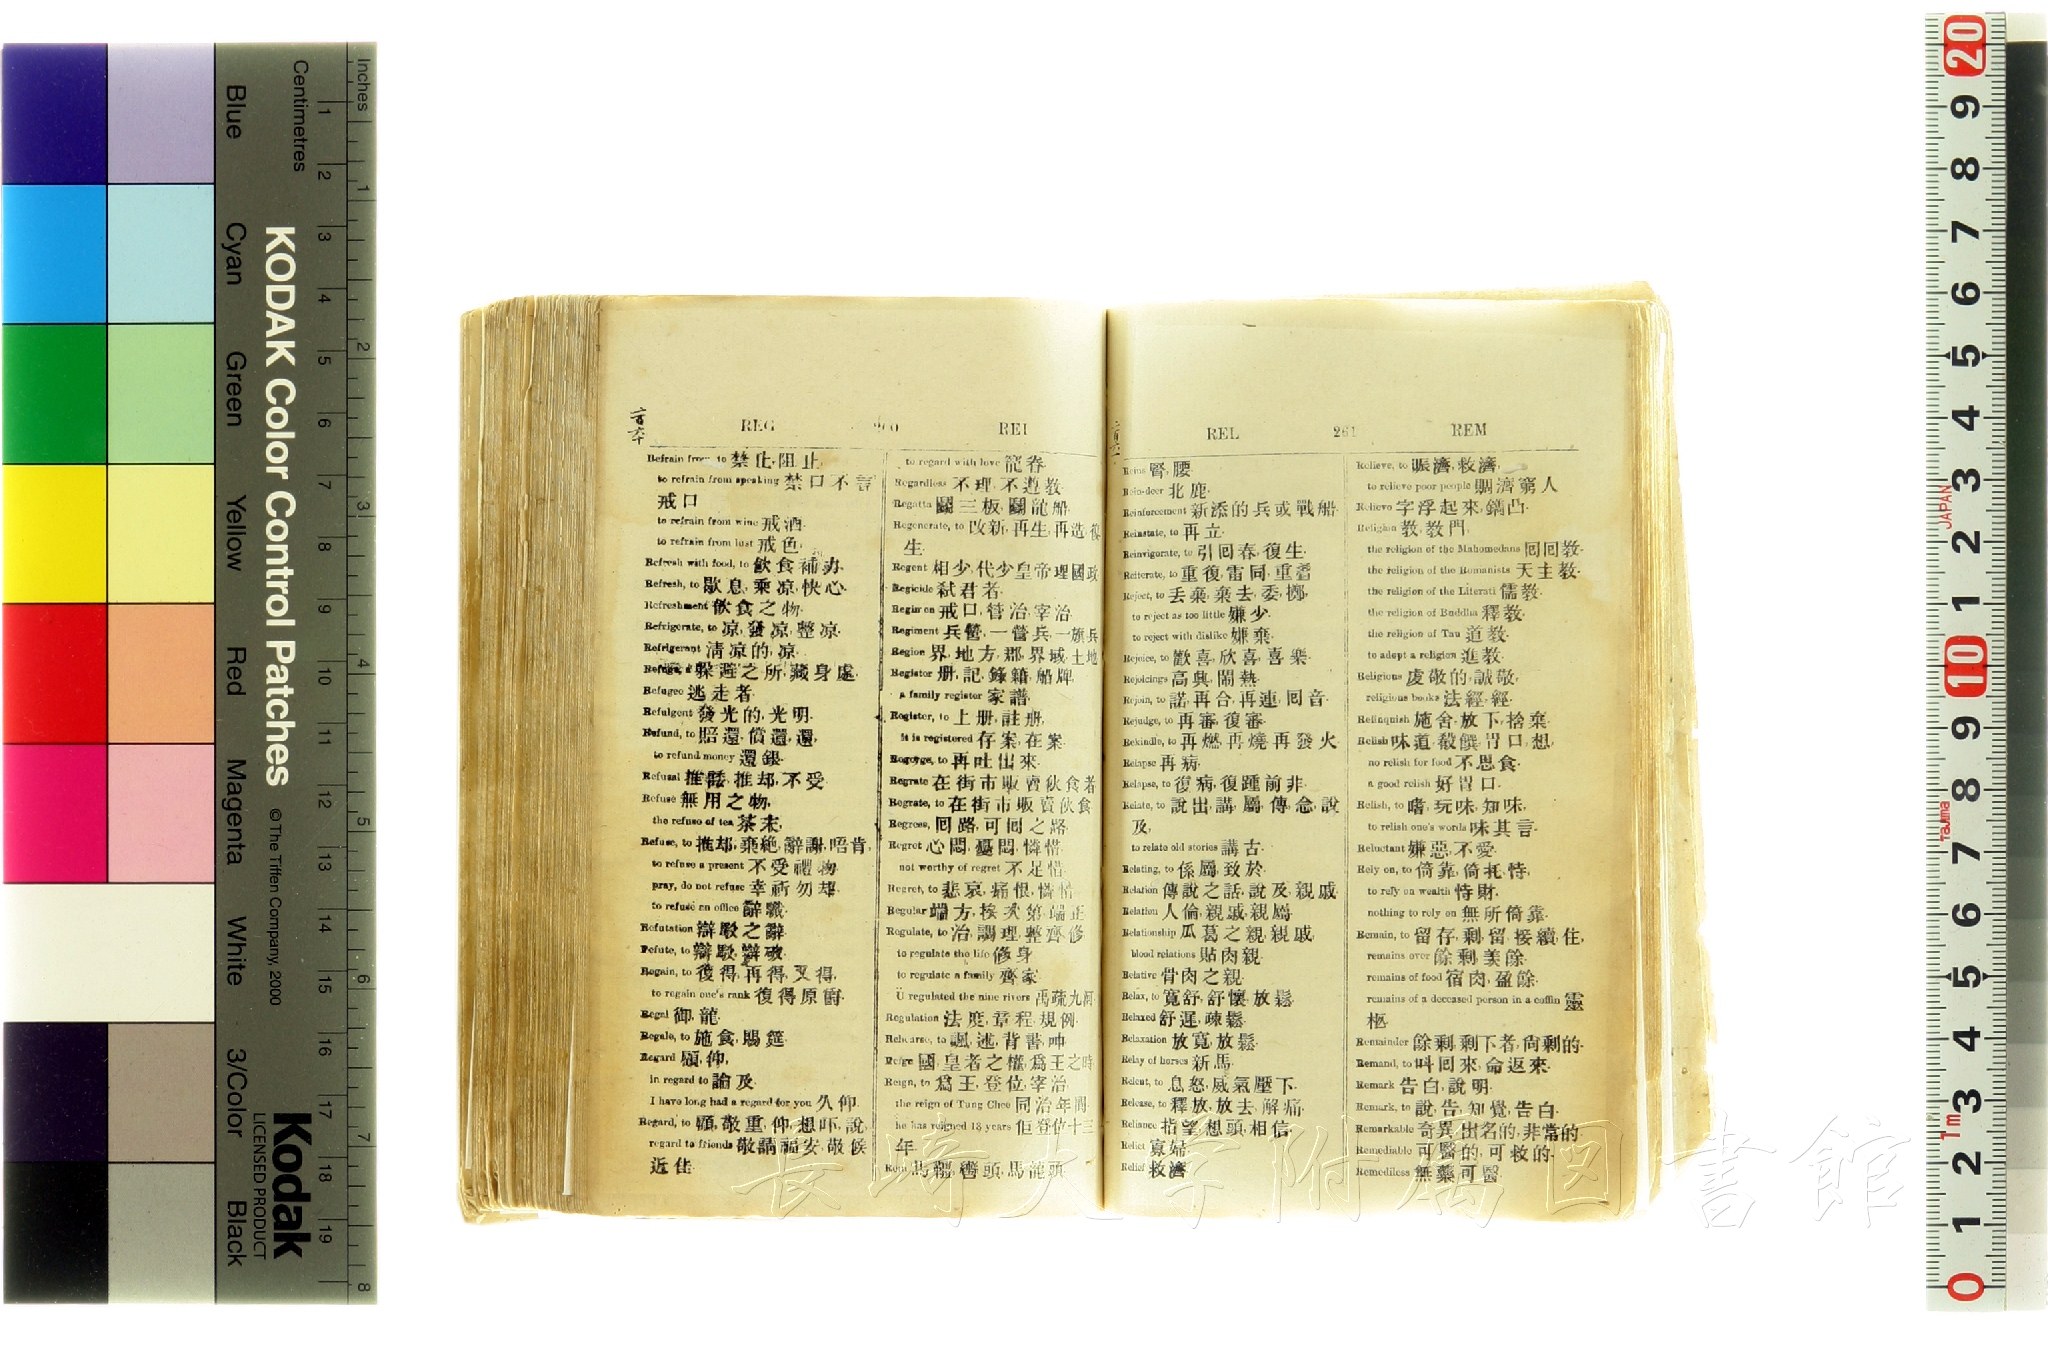 REG 260 REI
Refrain from, to 禁止,阻止,
to refrain from speaking 禁口不言
戒口
to refrain from wine 戒酒.
to refrain from lust 戒色.
Refresh with food, to 飲食補力.
Refresh, to 歇息,乘凉,快心.
Refreshment 飲食之物.
Refrigerate, to 凉,發凉,整凉.
Refrigerant 清凉的,凉.
躱避之所,藏身處.
Refugee 逃走者.
Refulgent 發光的,光明.
Refund, to 賠還,償還,還,
to refund money 還銀.
Refusal 推却,不受.
Refuse 無用之物,
the refuse of tea 茶末,
Refuse, to 推却,棄絶,辭謝,唔肯.
to refuse a present 不受禮物
pray, do not refuse 幸祈勿却.
to refuse an office 辭職.
Refutation 辯駁之辭.
Refute, to 辯駁,辯破.
Regain, to 復得,再得,又得,
to regain one's rank 復得原爵.
Regal 御,龍.
Regale, to 施食,賜筵.
Regard 顧,仰,
in regard to 論及.
I have long had a regard for you 久仰.
Regard, to 顧,敬重,仰,想吓,說.
regard to friends 敬請福安,敬候
近佳.
to regard with love 寵眷.
Regardless 不理,不遵教.
Regatta 鬭三板,鬭龍船.
Regenerate, to 改新,再生,再造,復
生.
Regent 相少,代少皇帝理國政
Regicide 弑君者.
Regimen 戒口,管治,宰治.
Regiment 兵營,一營兵,一旗兵
Region 界,地方,郡,界域,土地
Register 册,記,錄,籍,船牌.
a family register 家譜.
Register, to 上册,註册,
it is registered 存案,在案.
Regorge, to 再吐出來.
Regrate 在街市販賣伙食者
Regrate, to 在街市販賣伙食
Regress, 回路,可回之路.
Regret 心悶,憂悶,憐惜.
not worthy of regret 不足惜.
Regret, to 悲哀,痛恨,憐惜.
Regular 端方,挨次第,端正.
Regulate, to 治,調理,整齊,修.
to regulate the life 修身
to regulate a family 齊家.
Ü regulated the nine rivers 禹疏九河.
Regulation 法度,章程,規例.
Rehearse, to 諷,述,背書,呻.
Reign 國,皇者之權,爲王之時
Reign, to 爲王,登位,宰治.
the reign of Tung Chee 同治年間.
he has reigned 13 years 佢登位十三
年.
Rein 馬韁,轡頭,馬龍頭.
REL 261 REM
Reins 腎,腰.
Rein-deer 北鹿.
Reinforcement 新添的兵或戰船.
Reinstate, to 再立.
Reinvigorate, to 引回春,復生.
Reiterate, to 重復,雷同,重
Reject, to 丢棄,棄去,委擲,
to reject as too little 嫌少.
to reject with dislike 嫌棄.
Rejoice, to 歡喜,欣喜,喜樂.
Rejoicings 高興,鬧熱.
Rejoin, to 諾,再合,再連,回音.
Rejudge, to 再審,復審.
Rekindle, to 再燃,再燒,再發火.
Relapse 再病.
Relapse, to 復病,復踵前非.
Relate, to 說出,講,屬,傳念,說
及,
to relate old stories 講古.
Relating, to 係屬,致於.
Relation 傳說之話,說及,親戚.
Relation 人倫,親戚,親屬.
Relationship 瓜葛之親,親戚.
blood relations 貼肉親.
Relative 骨肉之親.
Relax, to 寬舒,舒懷,放鬆.
Relaxed 舒遲,疎鬆.
Relaxation 放寬,放鬆.
Relay of horses 新馬.
Relent, to 息怒,威氣壓下.
Release, to 釋放,放去,解痛.
Reliance 指望,想頭,相信.
Relict 寡婦.
Relief 救濟.
Relieve, to 賑濟,救濟,
to relieve poor people 賙濟窮人
Relievo 字浮起來,鎸凸.
Religion 教,教門.
the religion of the Mahomedans 回回教.
the religion of the Romanists 天主教.
the religion of the Literati 儒教.
the religion of Buddha 釋教.
the religion of Tau 道教.
to adopt a religion 進教.
Religious 虔敬的,誠敬,
religious books 法經,經.
Relinquish 施舍,放下,捨棄.
Relish 味道,殽饌,胃口,想,
no relish for food 不思食.
a good relish 好胃口.
Relish, to 嗜,玩味,知味,
to relish one's words 味其言.
Reluctant 嫌惡,不愛.
Rely on, to 倚靠,倚托,恃,
to rely on wealth 恃財.
nothing to rely on 無所倚靠.
Remain, to 留存,剩,留,接續,住,
remains over 餘剩,羨餘.
remains of food 宿肉,盈餘.
remains of a deceased person in a coffin 靈
柩.
Remainder 餘剩,剩下者,尙剩的.
Remand, to 呌回來,命返來.
Remark 告白,說明.
Remark, to 說,告,知覺,告白.
Remarkable 奇異,出名的,非常的
Remediable 可醫的,可救的.
Remediless 無藥可醫.
長崎大学附属図書館
Blue Cyan Green Yellow Red Magenta White 3/Color Black
KODAK Color Control Patches © The Tiffen Company, 2000
Kodak
LICENSED PRODUCT
Centimetres 1 2 3 4 5 6 7 8 9 10 11 12 13 14 15 16 17 18 19
Inches 1 2 3 4 5 6 7 8
20 9 8 7 6 5 4 3 2 1 10 9 8 7 6 5 4 3 2 1 0
JAPAN
Tajima
1m